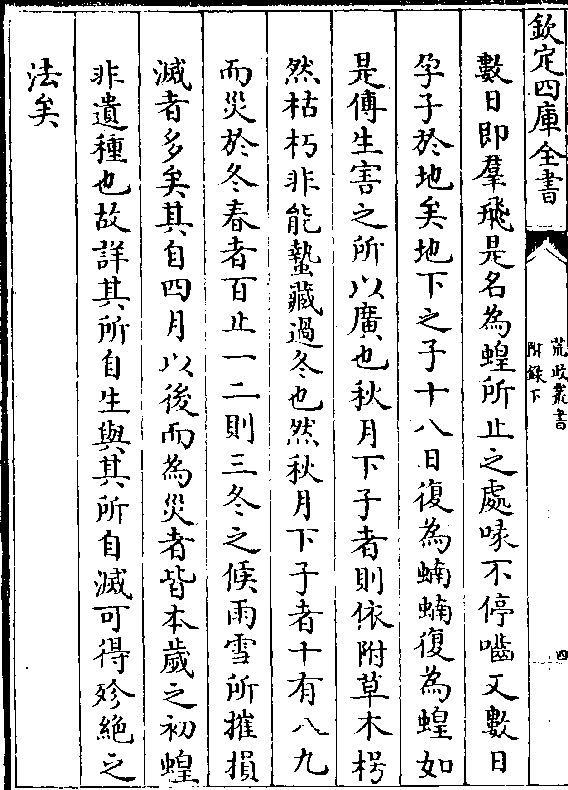 欽定四庫全書
荒政叢書
附錄下
四
數日即羣飛是名為蝗所止之處喙不停嚙又數日
孕子於地矣地下之子十八日復為蝻蝻復為蝗如
是傅生害之所以廣也秋月下子者則依附草木枵
然枯朽非能蟄藏過冬也然秋月下子者十有八九
而災於冬春者百止一二則三冬之候雨雪所摧損
滅者多矣其自四月以後而為災者皆本歲之初蝗
非遺種也故詳其所自生與其所自滅可得殄絕之
法矣